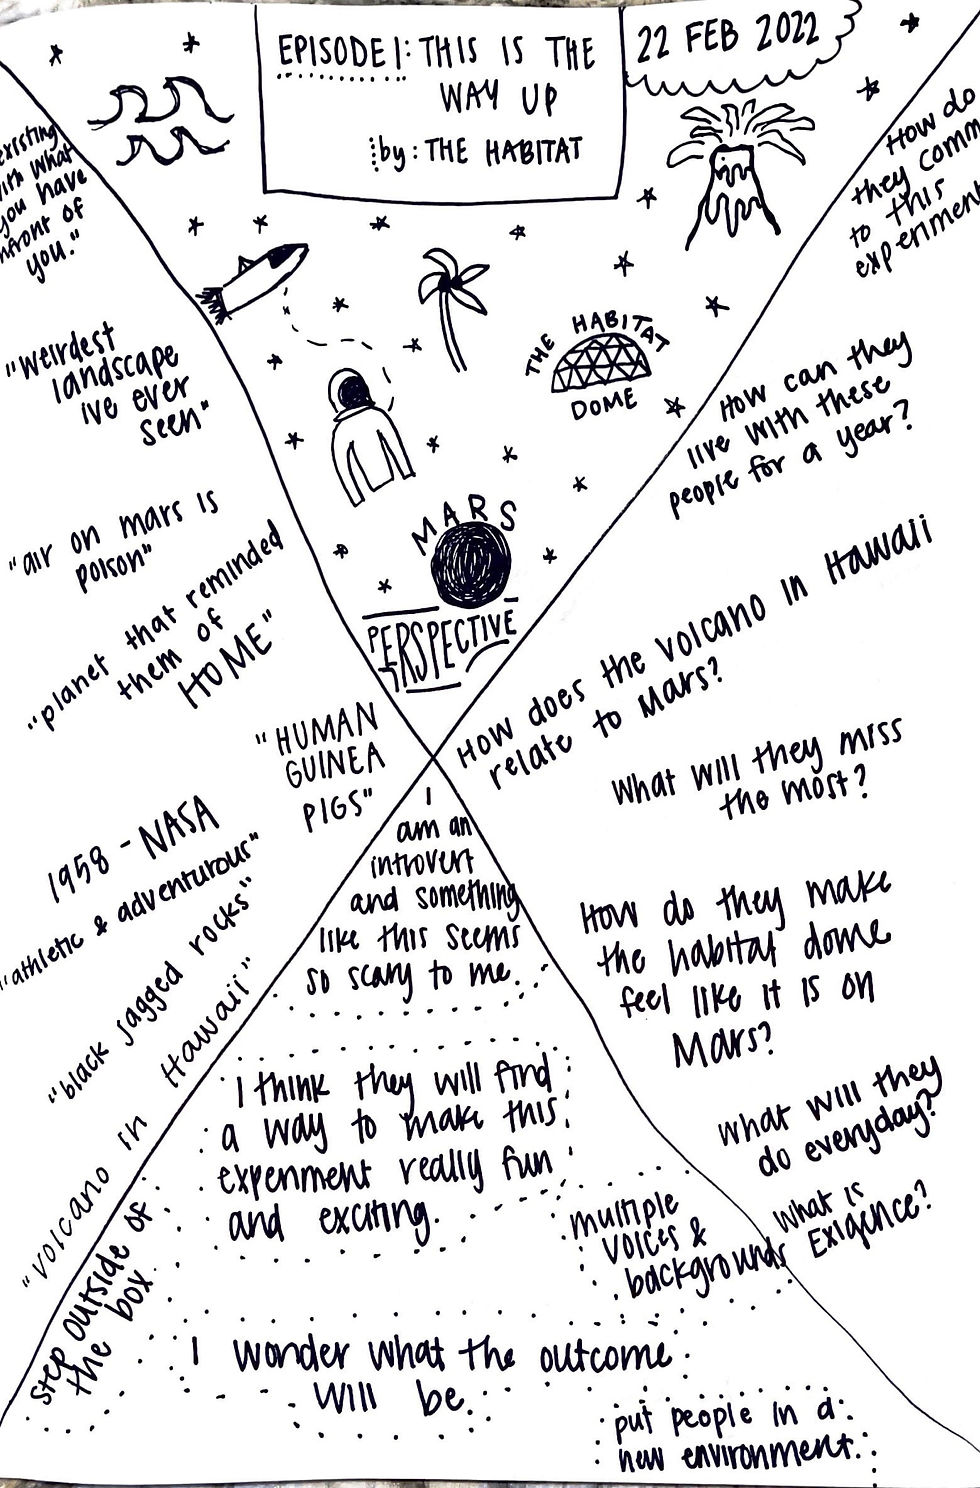 EPISODE 1: THIS IS THE
WAY UP
by: THE HABITAT
22 FEB 2022
THE HABITAT
DOME
MARS
PERSPECTIVE
existing
with what
you have
infront of
you."
"weirdest
landscape
ive ever
seen"
"air on mars is
poison"
"planet that reminded
them of
HOME"
"HUMAN
GUINEA
PIGS"
1958 - NASA
"athletic & adventurous"
"black jagged rocks"
"volcano in Hawaii"
How do
they comm
to this
experiment
How can they
live with these
people for a year?
How does the volcano in Hawaii
relate to Mars?
What will they miss
the most?
How do they make
the habitat dome
feel like it is on
Mars?
what will they
do everyday?
What is
Exigence?
I
am an
introvert
and something
like this seems
so scary to me.
I think they will find
a way to make this
experiment really fun
and exciting.
multiple
voices &
backgrounds
step outside of
the box
I wonder what the outcome
will be.
put people in a
new environment.